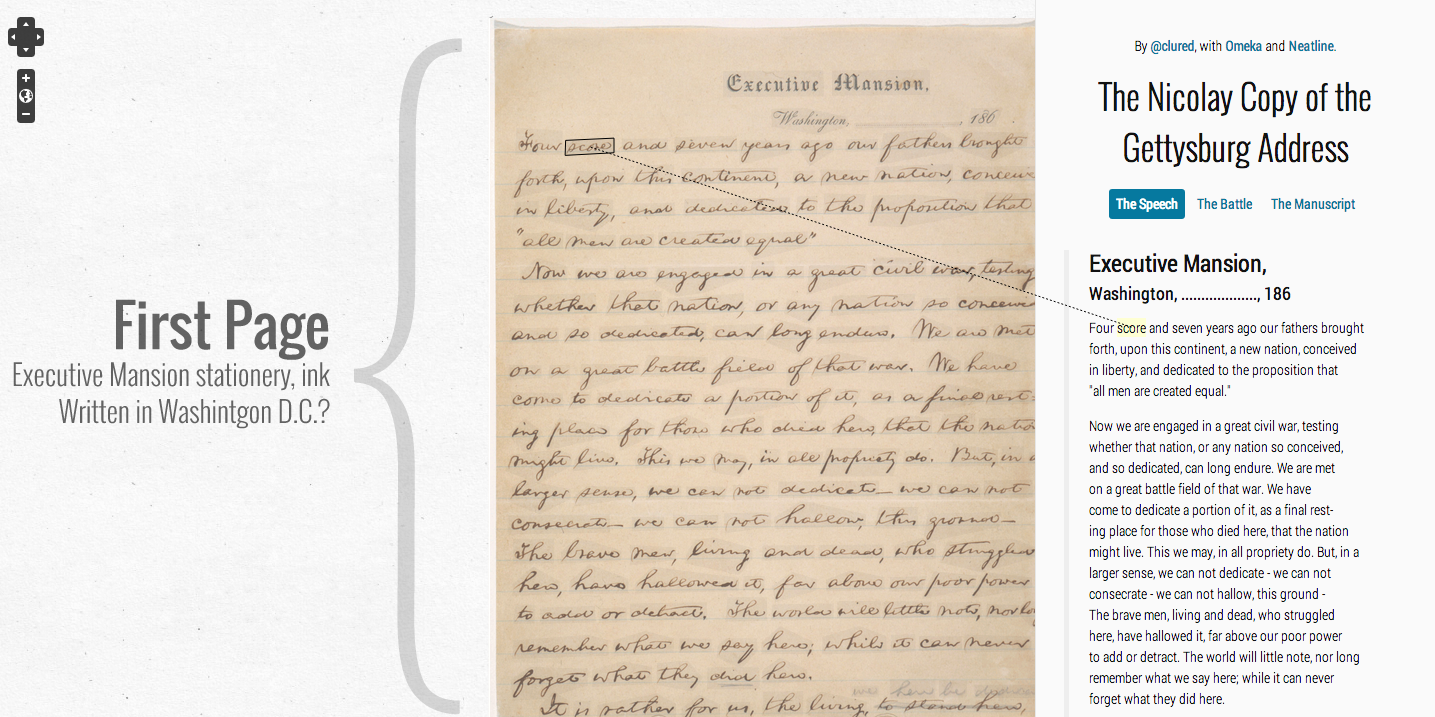 First Page
Executive Mansion stationery, ink
Written in Washintgon D.C.?
Executive Mansion,
Washington, , 186 .
Four score and seven years ago our fathers brought
forth, upon this continent, a new nation, conceiv
in liberty, and dedicated to the proposition that
"all men are created equal"
Now we are engaged in a great civil war, testing
whether that nation, or any nation so conceive
and so dedicated, can long endure. We are met
on a great battle field of that war. We have
come to dedicate a portion of it, as a final rest-
ing place for those who died here, that the natio
might live. This we may, in all propriety do. But, in a
larger sense, we can not dedicate — we can not
consecrate — we can not hallow, this ground —
The brave men, living and dead, who struggled
here, have hallowed it, far above our poor power
to add or detract. The world will little note, nor lo
remember what we say here; while it can never
forget what they did here.
we here be
It is rather for us, the living, to stand here,
By @clured, with Omeka and Neatline.
The Nicolay Copy of the
Gettysburg Address
The Speech The Battle The Manuscript
Executive Mansion,
Washington, ..................., 186
Four score and seven years ago our fathers brought
forth, upon this continent, a new nation, conceived
in liberty, and dedicated to the proposition that
"all men are created equal."
Now we are engaged in a great civil war, testing
whether that nation, or any nation so conceived,
and so dedicated, can long endure. We are met
on a great battle field of that war. We have
come to dedicate a portion of it, as a final rest-
ing place for those who died here, that the nation
might live. This we may, in all propriety do. But, in a
larger sense, we can not dedicate - we can not
consecrate - we can not hallow, this ground -
The brave men, living and dead, who struggled
here, have hallowed it, far above our poor power
to add or detract. The world will little note, nor long
remember what we say here; while it can never
forget what they did here.